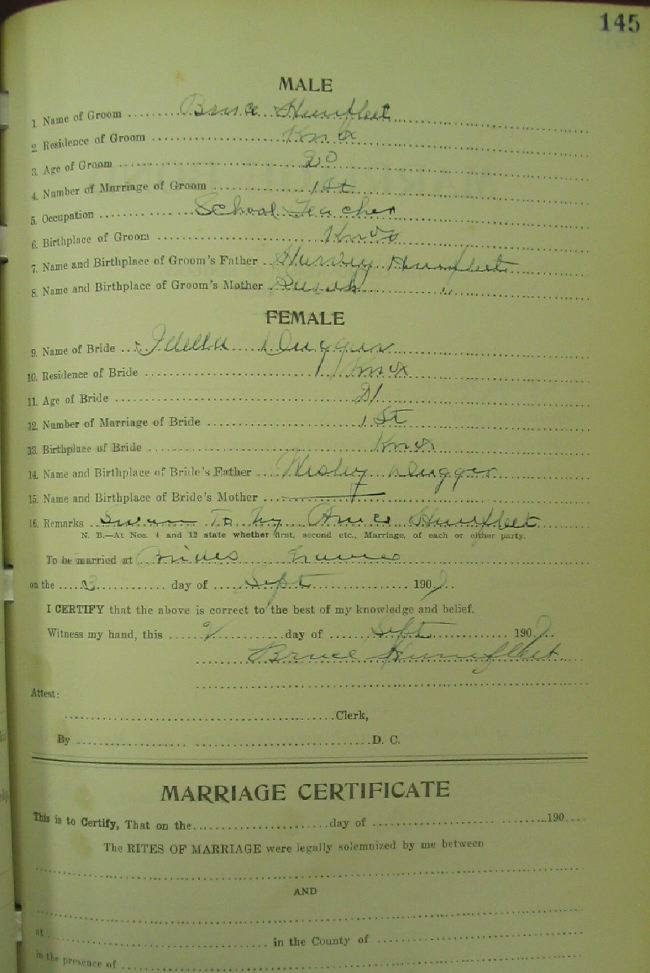 145
MALE
1. Name of Groom Bruce Humfleet
2. Residence of Groom Knox
3. Age of Groom 20
4. Number of Marriage of Groom 1st
5. Occupation School Teacher
6. Birthplace of Groom Knox
7. Name and Birthplace of Groom's Father Humfleet
8. Name and Birthplace of Groom's Mother "
FEMALE
9. Name of Bride Idella Dugger
10. Residence of Bride Knox
11. Age of Bride 21
12. Number of Marriage of Bride 1st
13. Birthplace of Bride Knox
14. Name and Birthplace of Bride's Father Wesley Dugger
15. Name and Birthplace of Bride's Mother
16. Remarks Sworn To by Bruce Humfleet
N. B.—At Nos. 4 and 12 state whether first, second etc., Marriage, of each or either party.
To be married at Brides
on the 3 day of Sept 190
I CERTIFY that the above is correct to the best of my knowledge and belief.
Witness my hand, this day of Sept 190
Bruce Humfleet
Attest:
Clerk,
By D. C.
MARRIAGE CERTIFICATE
This is to Certify, That on the day of 190
The RITES OF MARRIAGE were legally solemnized by me between
AND
at in the County of
in the presence of